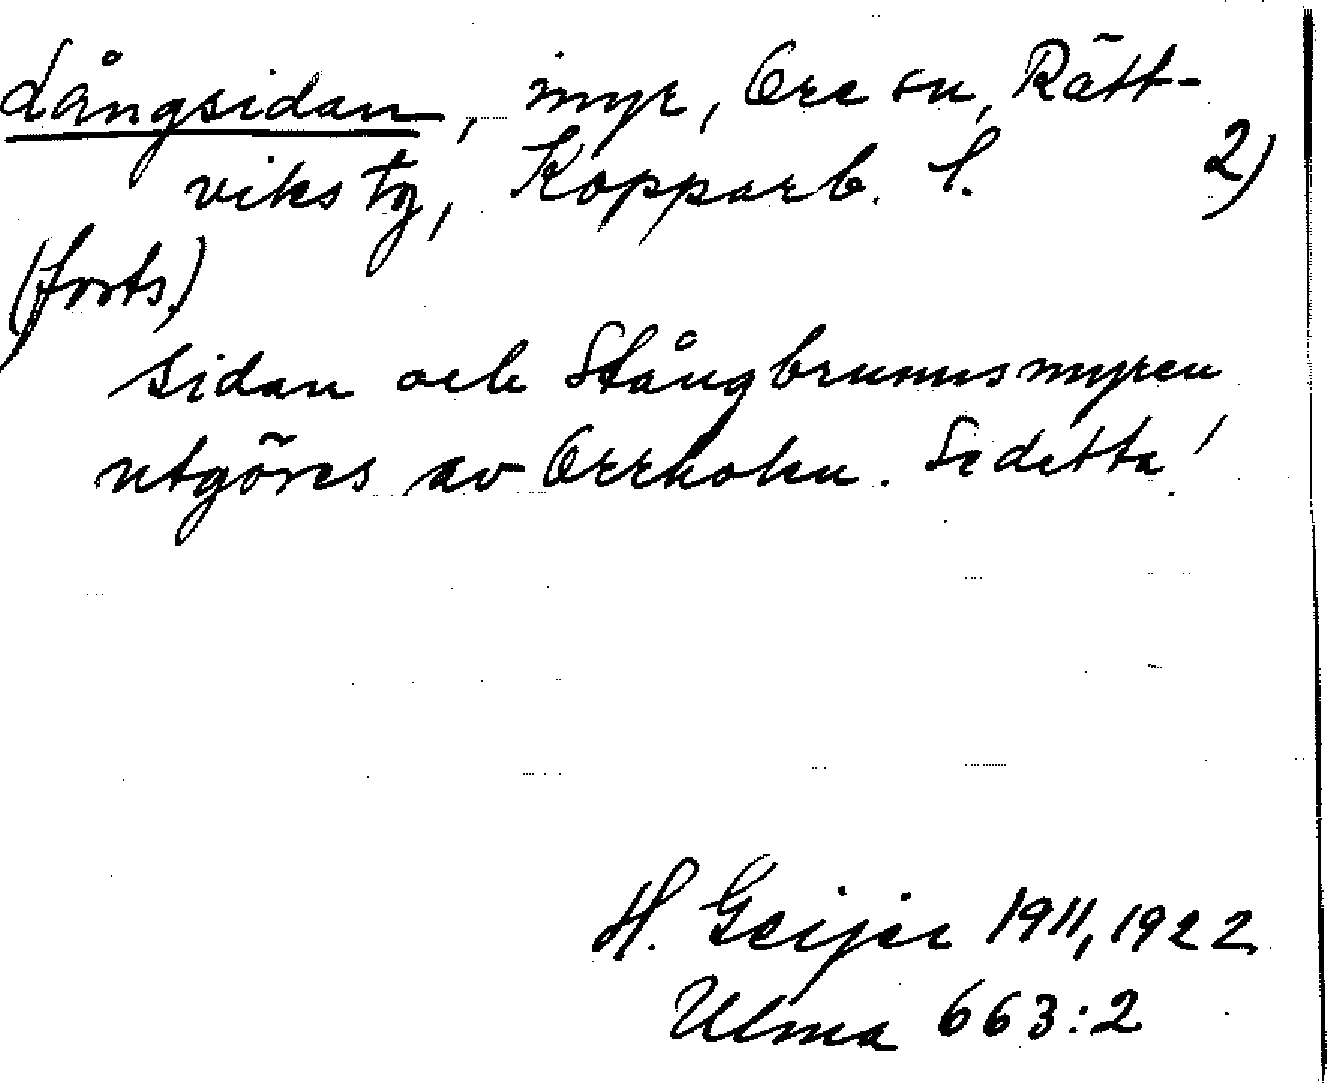 Långsidan, myr, Ore sn, Rätt-
viks tg, Kopparb. l. 2)
(forts.)
sidan och Stångbrunnsmyren
utgöres av Orrholn. Se detta!
H. Geijer 1911, 1922
Ulma 663:2